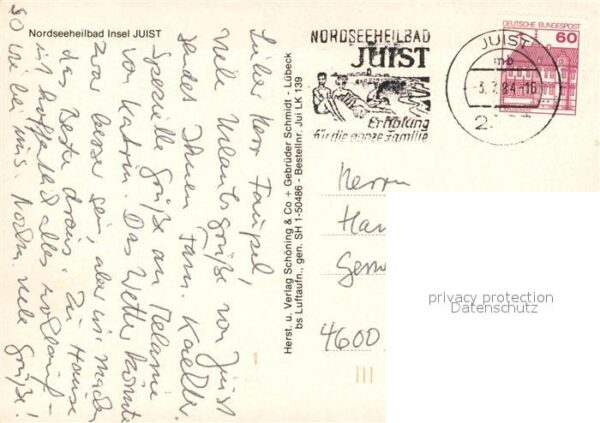 Nordseeheilbad Insel JUIST
Lieber Herr Faupel,
viele Urlaubsgrüße von Juist
sendet Ihnen Fam. Kaeller.
Spezielle Grüße an Melanie
von Katrin. Das Wetter könnte
zwar besser sein, aber wir machen
das Beste draus. Zu Hause
ist hoffentlich alles wohlauf –
so wie bei uns. Nochm. viele Grüße!
Herst. u. Verlag Schöning & Co + Gebrüder Schmidt - Lübeck
bs Luftaufn., gen. SH 1-50486 - Bestellnr. Jui LK 139
NORDSEEHEILBAD
JUIST
Erholung
für die ganze Familie
JUIST
mb
-3.7.84-16
DEUTSCHE BUNDESPOST
60
Herrn
Han
4600
privacy protection
Datenschutz